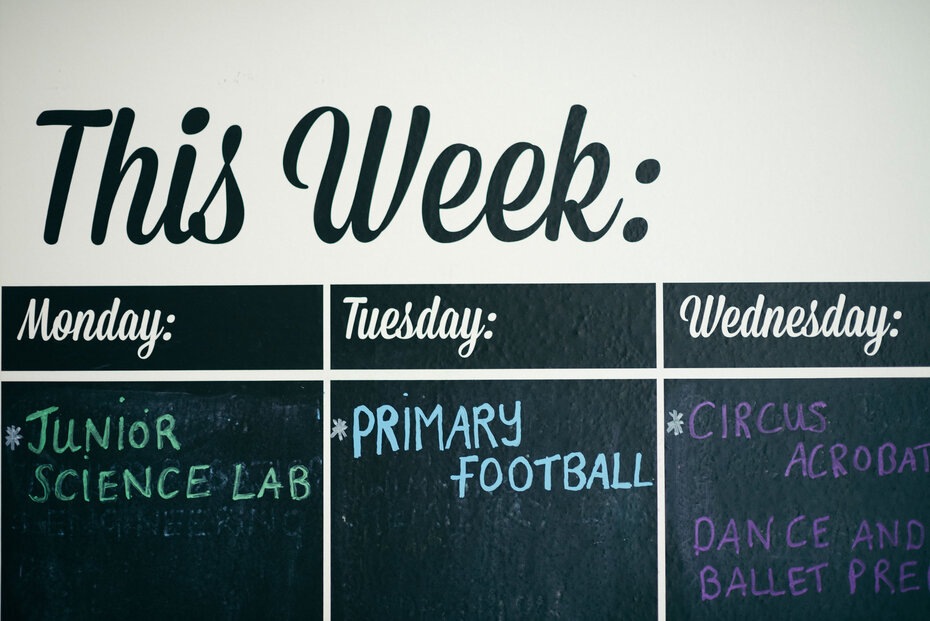 This Week:
Monday:
Tuesday:
Wednesday:
* JUNIOR
SCIENCE LAB
* PRIMARY
FOOTBALL
* CIRCUS
ACROBAT
DANCE AND
BALLET